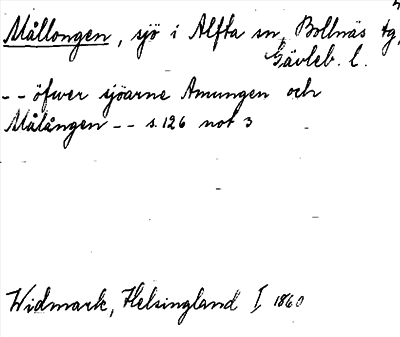 Mållongen, sjö i Alfta sn, Bollnäs tg,
Gävleb. l.
-- öfwer sjöarne Amungen och
Målången -- s. 126 not 3
Widmark, Helsingland I, 1860